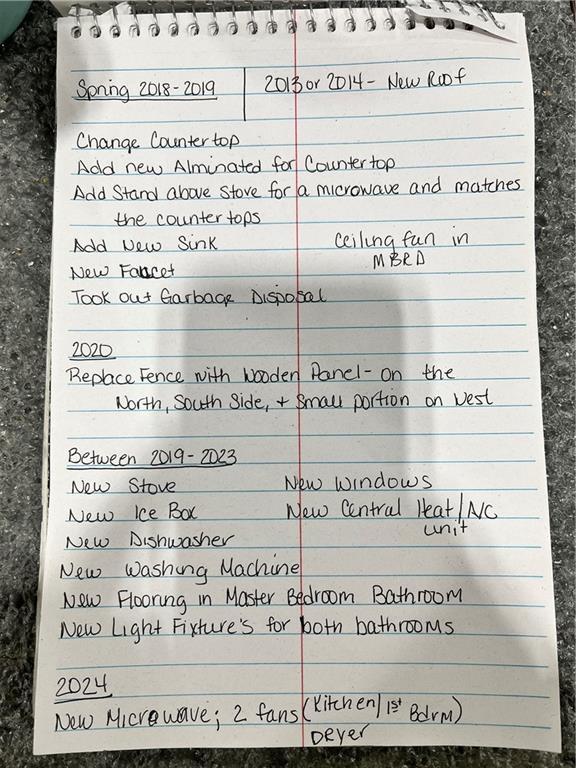 Spring 2018-2019 | 2013 or 2014 - New Roof
Change Countertop
Add new Alminated for Countertop
Add Stand above Stove for a microwave and matches
the countertops
Add New Sink
Ceiling fan in
MBRD
New Faucet
Took out Garbage Disposal
2020
Replace Fence with Wooden Panel - on the
North, South Side, + Small portion on West
Between 2019-2023
New Stove New Windows
New Ice Box New Central Heat/AC
unit
New Dishwasher
New Washing Machine
New Flooring in Master Bedroom Bathroom
New Light Fixture's for both bathrooms
2024
New Microwave; 2 fans (Kitchen/1st Bdrm)
Dryer